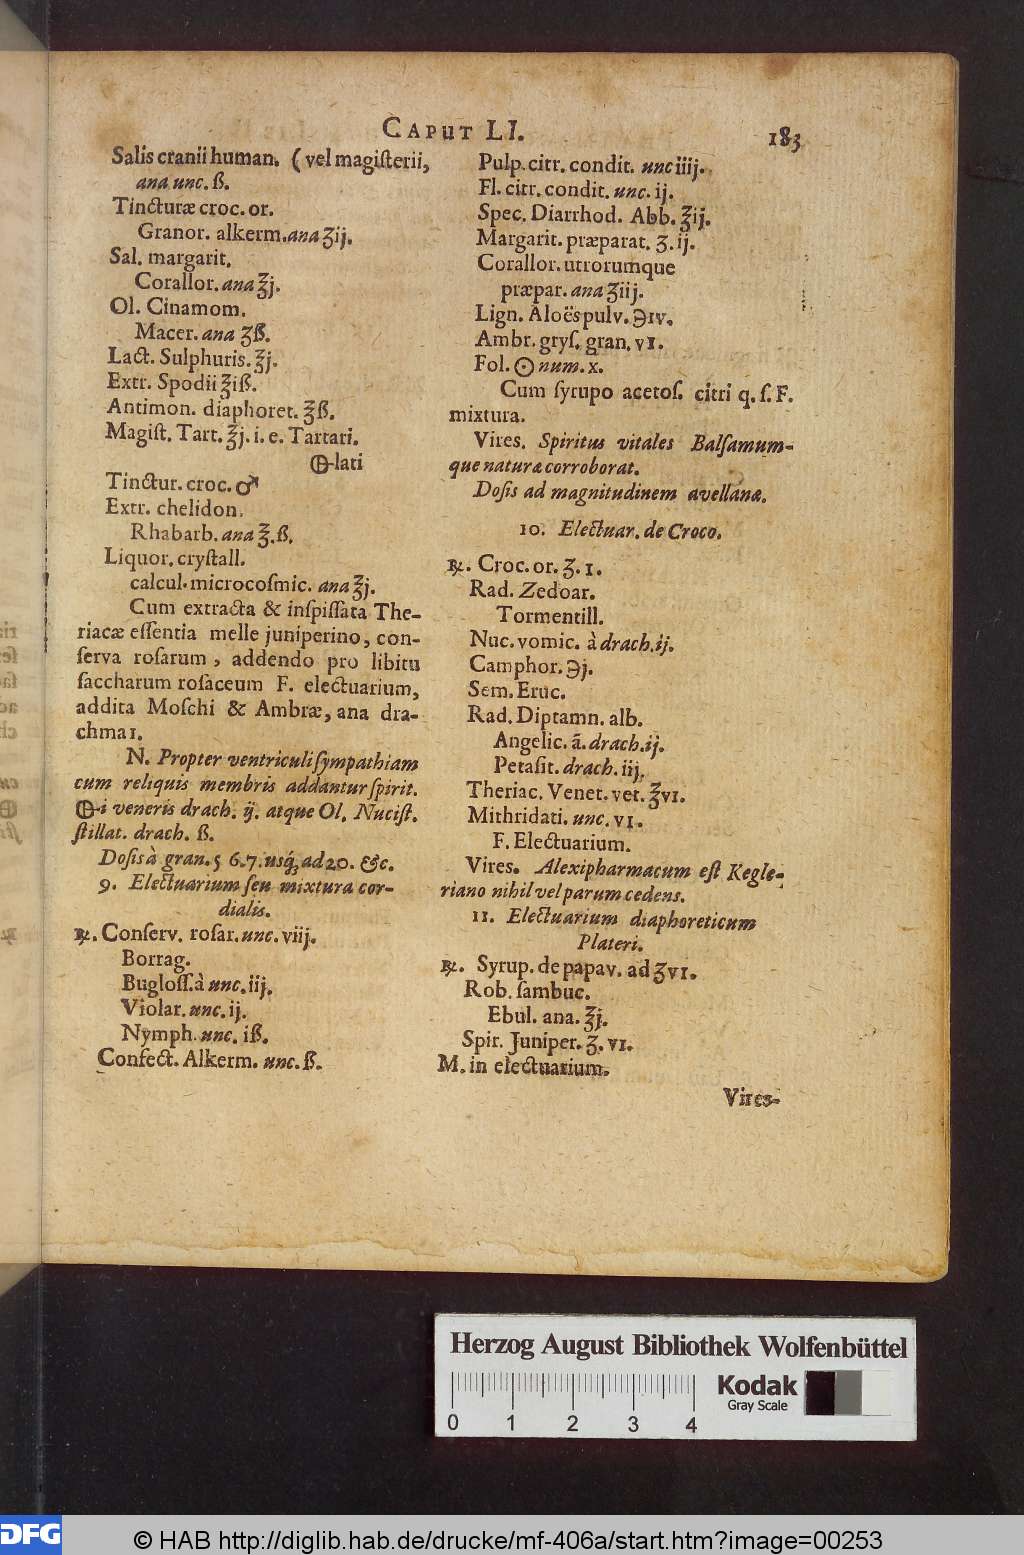 CAPUT LI. 183
Salis cranii human. (vel magiſterii,
ana unc. ß.
Tincturæ croc. or.
Granor. alkerm. ana ʒij.
Sal. margarit.
Corallor. ana ℥j.
Ol. Cinamom.
Macer. ana ʒß.
Lact. Sulphuris. ℥j.
Extr. Spodii ℥iß.
Antimon. diaphoret. ℥ß.
Magiſt. Tart. ℥j. i. e. Tartari.
🜕lati
Tinctur. croc. ♂
Extr. chelidon.
Rhabarb. ana ℥. ß.
Liquor. cryſtall.
calcul. microcoſmic. ana ℥j.
Cum extracta & inſpiſſata The-
riacæ eſſentia melle juniperino, con-
ſerva roſarum, addendo pro libitu
ſaccharum roſaceum F. electuarium,
addita Moſchi & Ambræ, ana dra-
chma 1.
N. Propter ventriculi ſympathiam
cum reliquis membris addantur ſpirit.
🜕-i veneris drach. ij. atque Ol. Nuciſt.
ſtillat. drach. ß.
Doſis à gran. 5 6. 7. uſq́; ad 20. &c.
9. Electuarium ſeu mixtura cor-
dialis.
℞. Conſerv. roſar. unc. viij.
Borrag.
Bugloſſ. à unc. iij.
Violar. unc. ij.
Nymph. unc. iß.
Confect. Alkerm. unc. ß.
Pulp. citr. condit. unc iiij.
Fl. citr. condit. unc. ij.
Spec. Diarrhod. Abb. ℥ij.
Margarit. præparat. ʒ. ij.
Corallor. utrorumque
præpar. ana ʒiij.
Lign. Aloës pulv. ℈iv.
Ambr. gryſ. gran. vi.
Fol. ☉ num. x.
Cum ſyrupo acetoſ. citri q. ſ. F.
mixtura.
Vires. Spiritus vitales Balſamum-
que naturæ corroborat.
Doſis ad magnitudinem avellanæ.
10. Electuar. de Croco.
℞. Croc. or. ʒ. 1.
Rad. Zedoar.
Tormentill.
Nuc. vomic. à drach. ij.
Camphor. ℈j.
Sem. Eruc.
Rad. Diptamn. alb.
Angelic. ã. drach. ij.
Petaſit. drach. iij.
Theriac. Venet. vet. ℥vi.
Mithridati. unc. vi.
F. Electuarium.
Vires. Alexipharmacum eſt Kegle-
riano nihil vel parum cedens.
11. Electuarium diaphoreticum
Plateri.
℞. Syrup. de papav. ad ʒvi.
Rob. ſambuc.
Ebul. ana. ℥j.
Spir. Juniper. ʒ. vi.
M. in electuarium.
Vires-
Herzog August Bibliothek Wolfenbüttel
Kodak
Gray Scale
0 1 2 3 4
DFG
© HAB http://diglib.hab.de/drucke/mf-406a/start.htm?image=00253